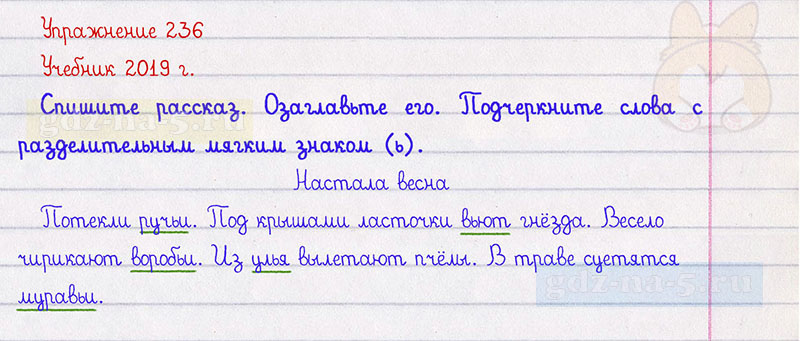 Упражнение 236
Учебник 2019 г.
Спишите рассказ. Озаглавьте его. Подчеркните слова с
разделительным мягким знаком (ь).
Настала весна
Потекли ручьи. Под крышами ласточки вьют гнёзда. Весело
чирикают воробьи. Из улья вылетают пчёлы. В траве суетятся
муравьи.
gdz-na-5.ru
gdz-na-5.ru